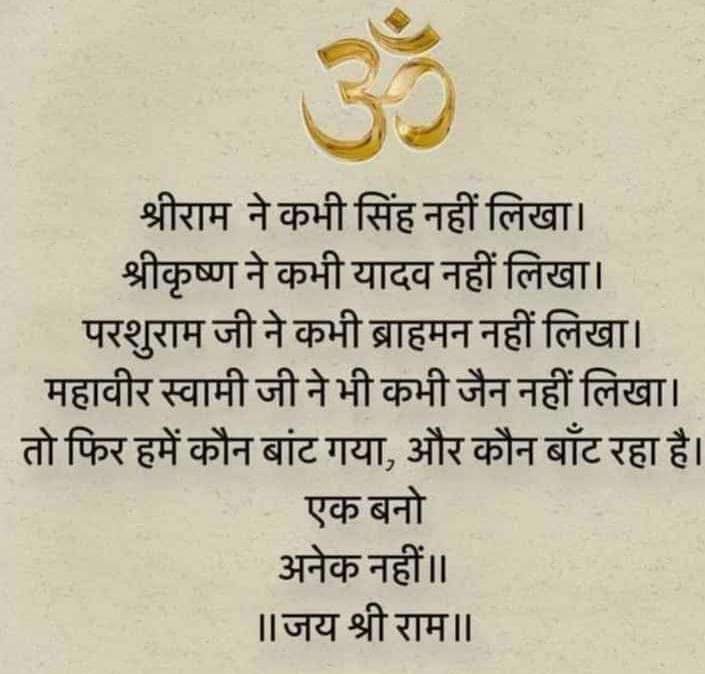 ॐ
श्रीराम ने कभी सिंह नहीं लिखा।
श्रीकृष्ण ने कभी यादव नहीं लिखा।
परशुराम जी ने कभी ब्राहमन नहीं लिखा।
महावीर स्वामी जी ने भी कभी जैन नहीं लिखा।
तो फिर हमें कौन बांट गया, और कौन बाँट रहा है।
एक बनो
अनेक नहीं॥
॥जय श्री राम॥